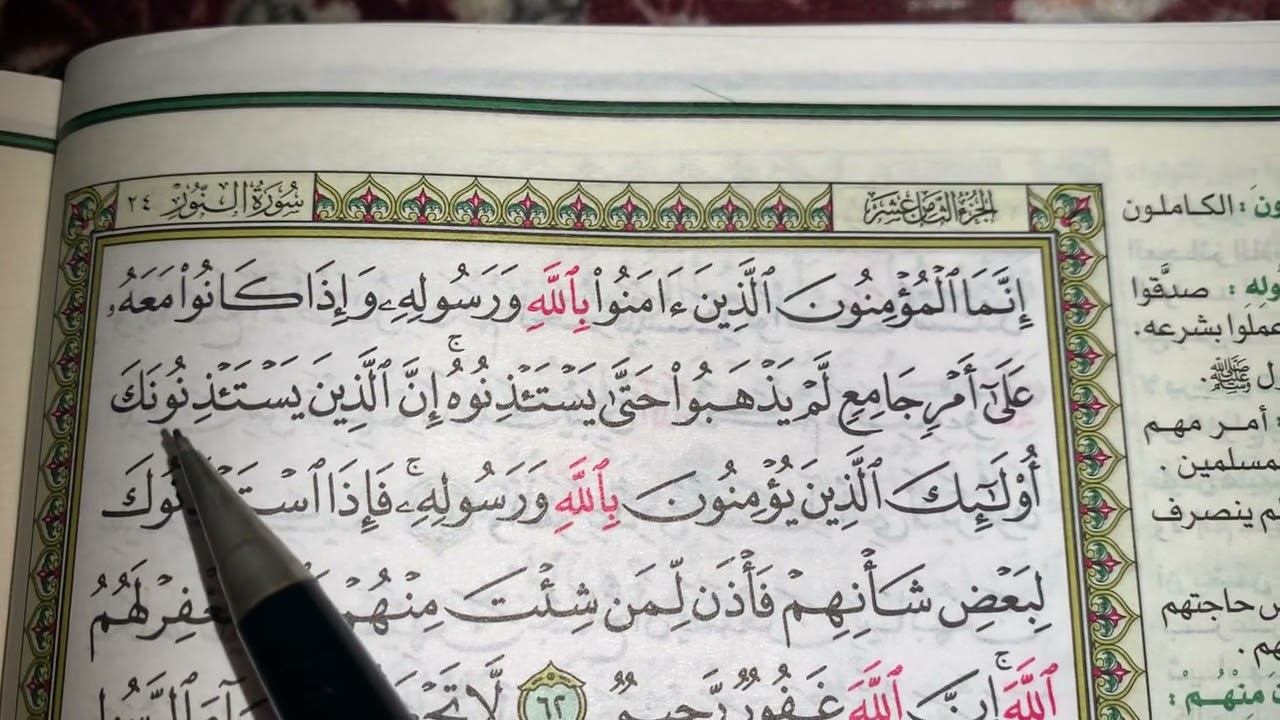 سُورَةُ النُّورِ ٢٤
الجُزْءُ الثَّامِنَ عَشَرَ
إِنَّمَا ٱلْمُؤْمِنُونَ ٱلَّذِينَ ءَامَنُوا۟ بِٱللَّهِ وَرَسُولِهِۦ وَإِذَا كَانُوا۟ مَعَهُۥ
عَلَىٰٓ أَمْرٍ جَامِعٍ لَّمْ يَذْهَبُوا۟ حَتَّىٰ يَسْتَـْٔذِنُوهُ ۚ إِنَّ ٱلَّذِينَ يَسْتَـْٔذِنُونَكَ
أُو۟لَـٰٓئِكَ ٱلَّذِينَ يُؤْمِنُونَ بِٱللَّهِ وَرَسُولِهِۦ ۚ فَإِذَا
لِبَعْضِ شَأْنِهِمْ فَأْذَن لِّمَن شِئْتَ مِنْهُمْ لَهُمُ
ٱللَّهَ ۚ إِنَّ ٱللَّهَ غَفُورٌ رَّحِيمٌ ٦٢ لَّا
الكاملون
صدَّقوا
عملوا بشرعه.
ﷺ.
أمر مهم
ينصرف
حاجتهم
مِنْهُمْ :